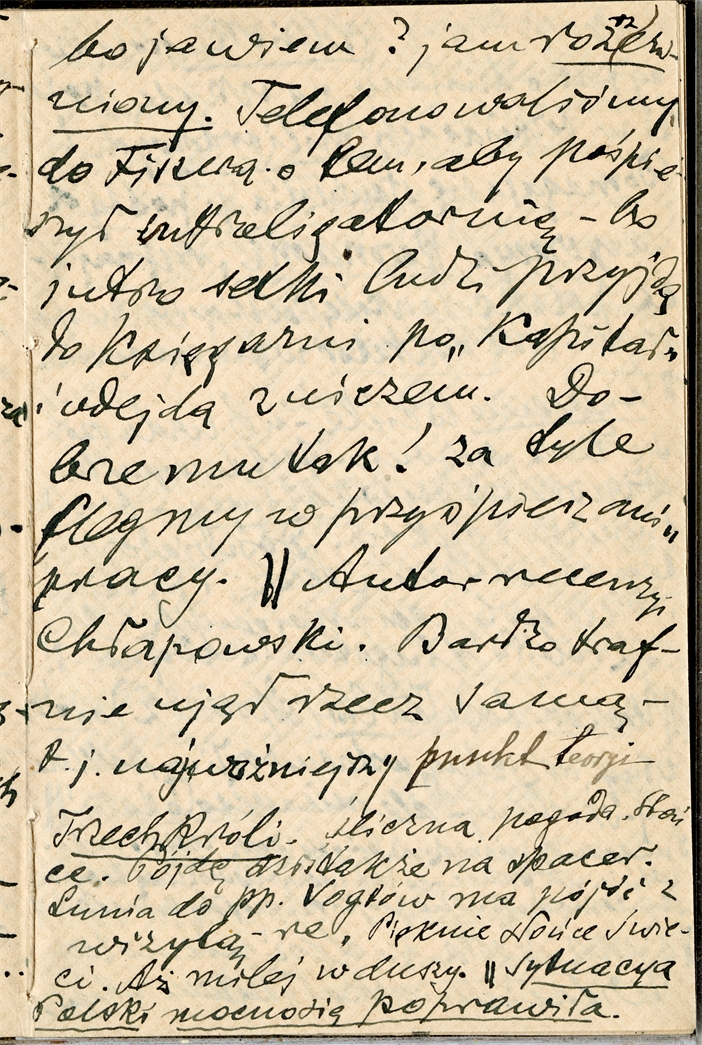 bo ja wiem? jam rozżew-
niony. Telefonowaliśmy
do Fiszera o tem, aby pośpie-
szył introligatornię - bo
jutro setki ludzi przyjdą
do księgarni po „Kapitał"
i odejdą z niczem. Do-
brze mu tak! za tyle
flegmy w przyśpieszaniu
pracy. || Autor recenzyi
Chłapowski. Bardzo traf-
nie ujął rzecz samą -
t. j. najważniejszy punkt teoryi
Trzech Króli. Śliczna pogoda. Słoń
ce. Pójdę dziś także na spacer.
Lunia do pp. Vogtów ma pójść z
wizytą - Pięknie słońce świe-
ci. Aż miłej w duszy. || Sytuacya
Polski mocno się poprawiła.